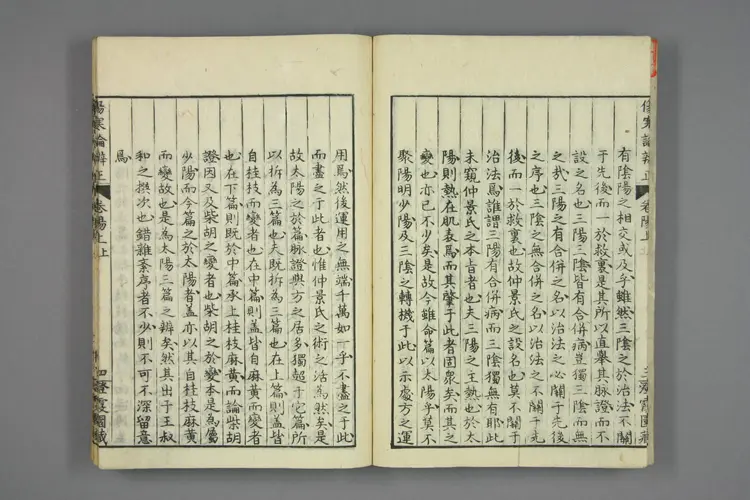 傷寒論辨正
有陰陽之相交或及乎雖然三陰之於治法不關
于先後而一於救裏是其所以直舉其脉證而不
設之名也三陽三陰皆有合併病邪獨三陰而無
之哉三陽之有合併之名以治法之必關于先後
之序也三陰之無合併之名以治法之不關于先
後而一於救裏也故仲景氏之設名也莫不關于
治法焉誰謂三陽有合併病而三陰獨無有耶此
未窺仲景氏之本旨者也夫三陽之主熱也於太
陽則熱在肌表焉而其肇于此者固衆矣而其之
變也亦已不少矣是故今雖命篇以太陽乎莫不
聚陽明少陽及三陰之轉機于此以示處方之運
用焉然後運用之無端千萬如一乎不盡之于此
而盡之于此者也惟仲景氏之術之活為然矣是
故太陽之於篇脉證與方之居多獨超于它篇所
以拆為三篇也夫既拆為三篇也在上篇則蓋皆
自桂枝而變者也在中篇則蓋皆自麻黃而變者
也在下篇則既於中篇承上桂枝麻黃而論柴胡
證因又及柴胡之變者也柴胡之於變本是為屬
少陽而今篇之於太陽者蓋亦以其自桂枝麻黃
而變故也是為太陽三篇之辨矣然其出于王叔
和之撰次也錯雜紊序者不少則不可不深留意
焉
傷寒論辨正
卷陽上上
四